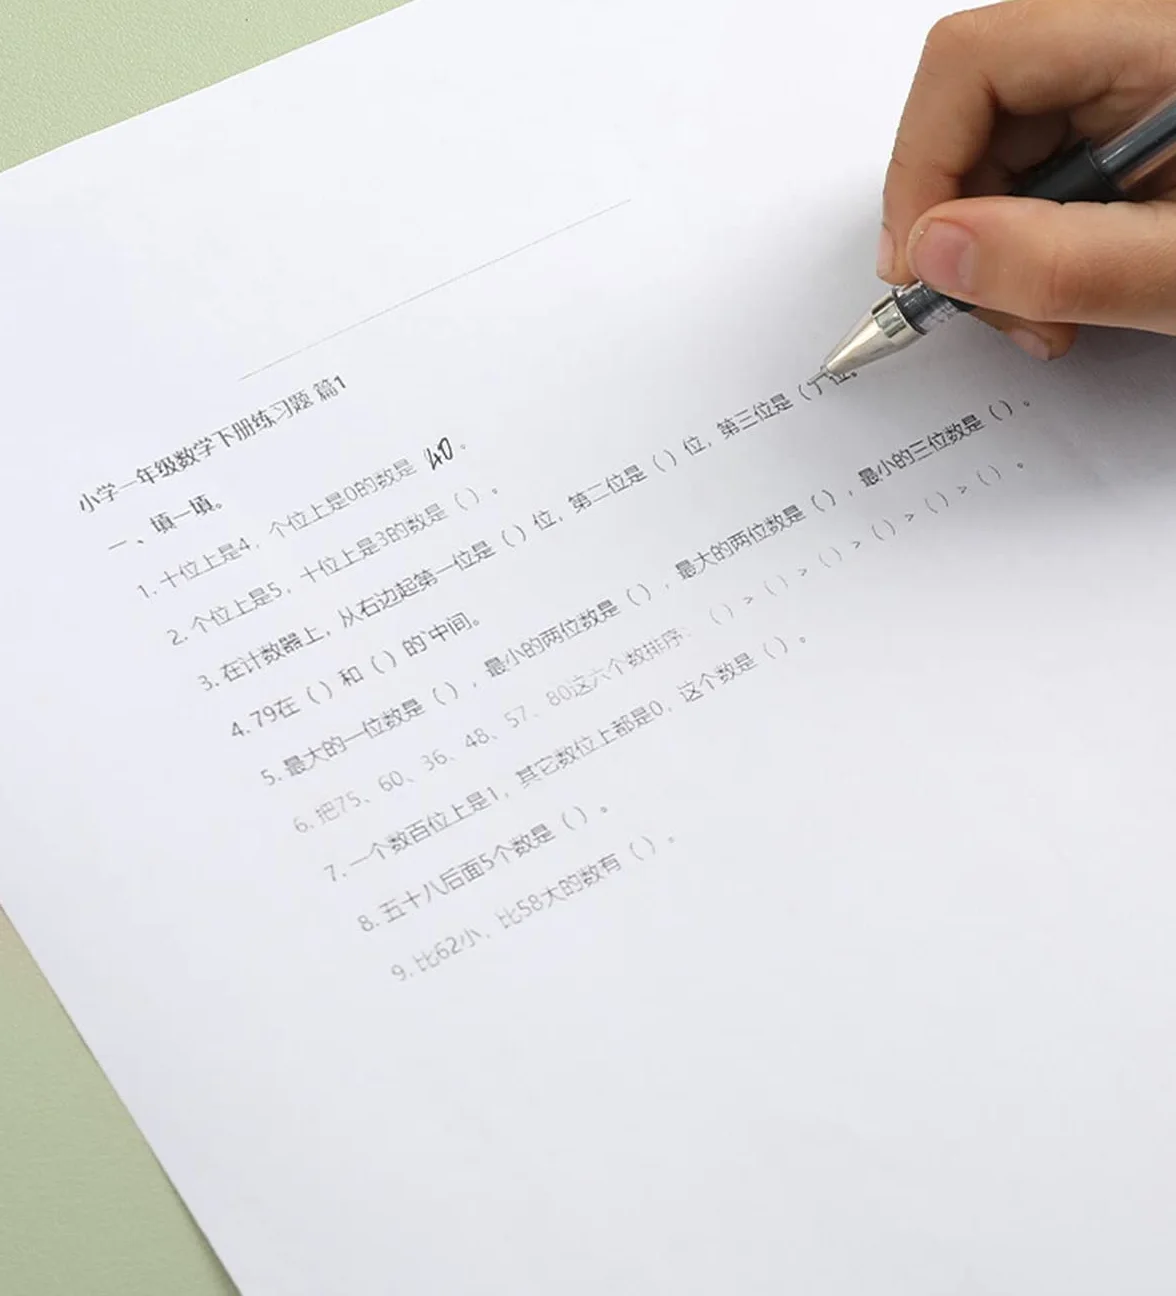 小学一年级数学下册练习题 篇1
一、填一填。
1. 十位上是4，个位上是0的数是 40 。
2. 个位上是5，十位上是3的数是（ ）。
3. 在计数器上，从右边起第一位是（ ）位，第二位是（ ）位，第三位是（ ）位。
4. 79在（ ）和（ ）的中间。
5. 最大的一位数是（ ），最小的两位数是（ ），最大的两位数是（ ），最小的三位数是（ ）。
6. 把75、60、36、48、57、80这六个数排序：（ ）>（ ）>（ ）>（ ）>（ ）>（ ）。
7. 一个数百位上是1，其它数位上都是0，这个数是（ ）。
8. 五十八后面5个数是（ ）。
9. 比62小，比58大的数有（ ）。